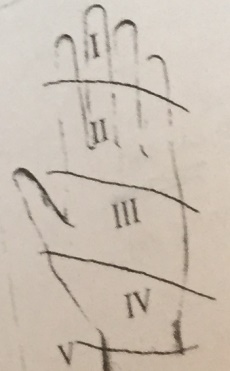 I
II
III
IV
V